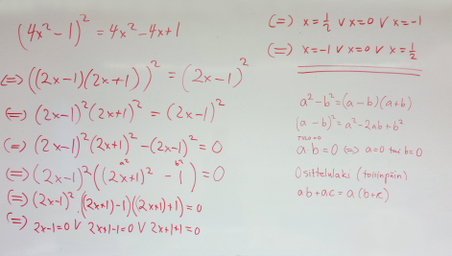 (4x²-1)² = 4x²-4x+1
(=) ((2x-1)(2x+1))² = (2x-1)²
(=) (2x-1)²(2x+1)² = (2x-1)²
(=) (2x-1)²(2x+1)² - (2x-1)² = 0
a² b²
(=) (2x-1)²((2x+1)² - 1) = 0
(=) (2x-1)² · ((2x+1)-1)((2x+1)+1) = 0
(=) 2x-1=0 V 2x+1-1=0 V 2x+1+1=0
(=) x=1/2 V x=0 V x=-1
(=) x=-1 V x=0 V x=1/2
a²-b²=(a-b)(a+b)
(a-b)²=a²-2ab+b²
ab=0 (=) a=0 tai b=0
Osittelulaki (toisinpäin)
ab+ac=a(b+c)